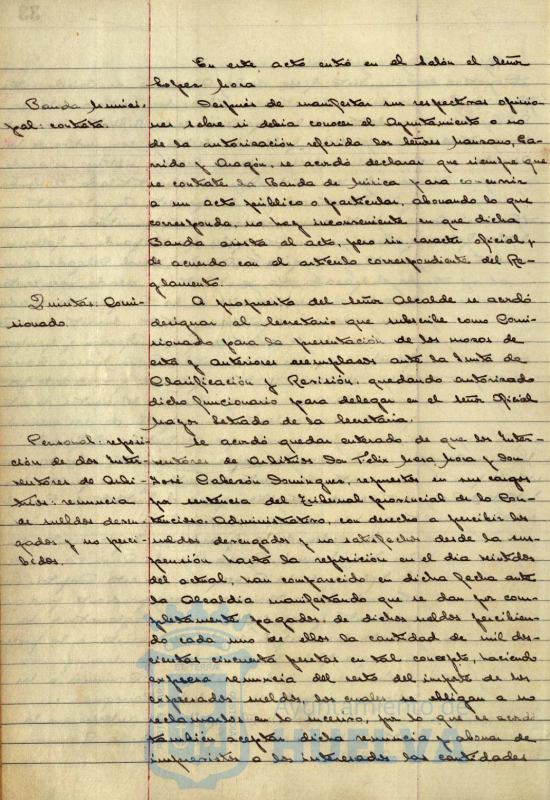 En este acto entró en el salón el Señor
Lopez Mora
Banda Munici-
pal: contrata.
Después de manifestar sus respectivas opinio-
nes sobre si debia conocer el Ayuntamiento o no
de la autorización referida los Señores Manzano, Ga-
rrido y Aragón, se acordó declarar que siempre que
se contrate la Banda de Música para concurrir
a un acto público o particular, abonando lo que
corresponda, no hay inconveniente en que dicha
Banda asista al acto, pero sin caracter oficial y
de acuerdo con el artículo correspondiente del Re-
glamento.
Quintas: Comi-
sionado.
A propuesta del Señor Alcalde se acordó
designar al Secretario que subscribe como Comi-
sionado para la presentación de los mozos de
este y anteriores reemplazos ante la Junta de
Clasificación y Revisión, quedando autorizado
dicho funcionario para delegar en el Señor Oficial
Mayor Letrado de la Secretaria.
Personal: reposi-
ción de dos Inter-
ventores de Arbi-
trios: renuncia
de sueldos deven-
gados y no perci-
bidos.
Se acordó quedar enterado de que los Inter-
ventores de Arbitrios Don Felix Mora Mora y Don
José Cabezón Dominguez, repuestos en sus cargos
por sentencia del Tribunal provincial de lo Con-
tencioso-Administrativo, con derecho a percibir los
sueldos devengados y no satisfechos desde la sus-
pensión hasta la reposición en el dia veintidos
del actual, han comparecido en dicha fecha ante
la Alcaldia manifestando que se dan por com-
pletamente pagados, de dichos sueldos percibien-
do cada uno de ellos la cantidad de mil dos-
cientas cincuenta pesetas en tal concepto, haciendo
expresa renuncia del resto del importe de los
expresados sueldos, los cuales se obligan a no
reclamarlos en lo sucesivo, por lo que se acordó
tambien aceptar dicha renuncia y abonar de
imprevistos a los interesados las cantidades
Ayuntamiento de
HUELVA